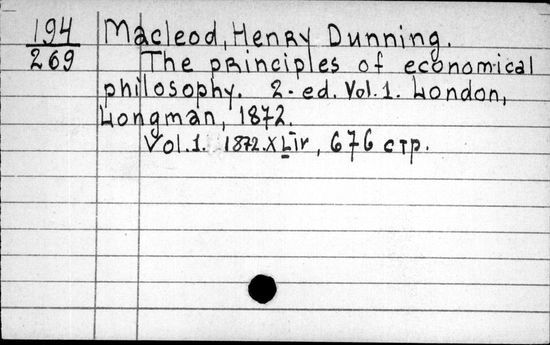 194 Macleod, Henry Dunning.
269 The principles of economical
philosophy. 2. ed. Vol. 1. London,
Longman, 1872.
Vol. 1. 1872. XLIV, 676 стр.